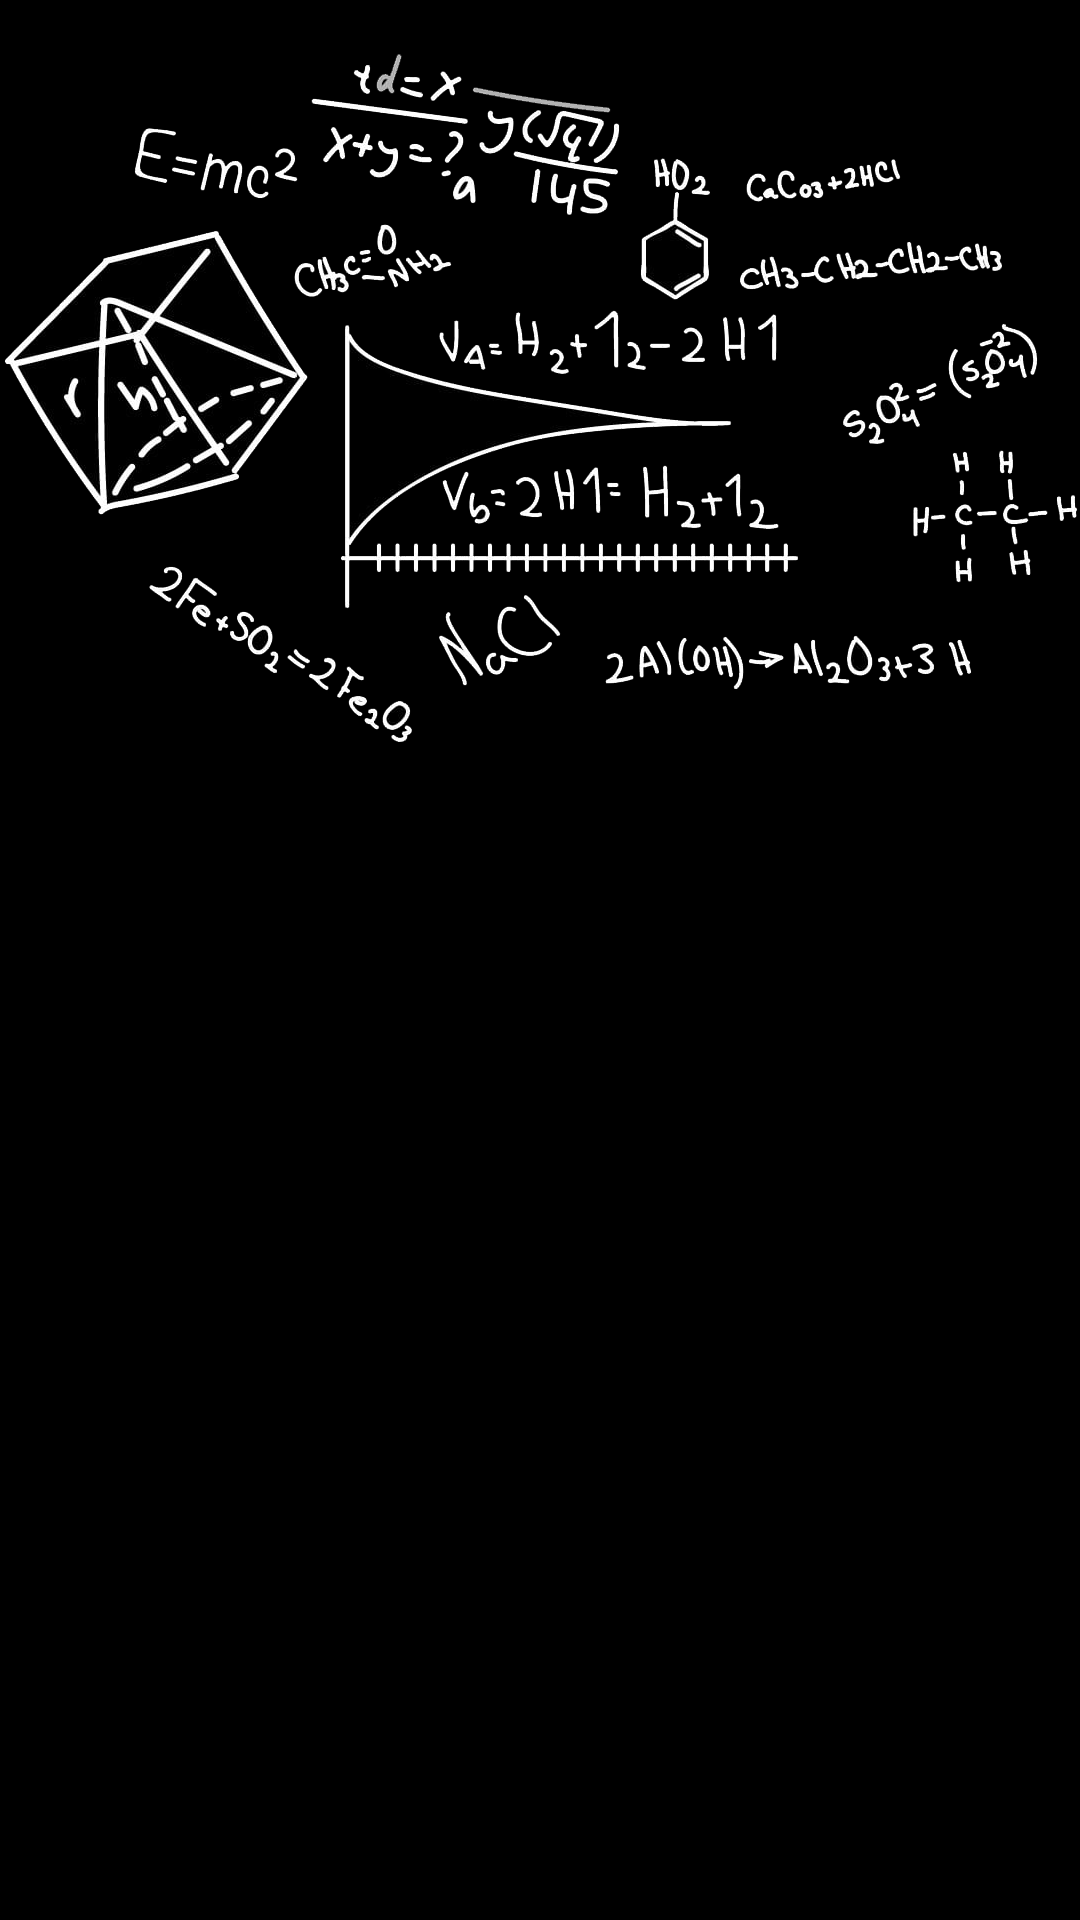 td=x
x+y=?
a
y(√q)
145
E=mc²
HO2
CaCo3+2HCl
CH3C=O
-NH2
CH3-CH2-CH2-CH3
VA=H2+12-2H1
S2O4²=(S2O4⁻²)
r h
Vb=2H1=H2+12
H H
H-C-C-H
H H
2Fe+SO2=2Fe2O3
NaCl
2Al(OH)→Al2O3+3H